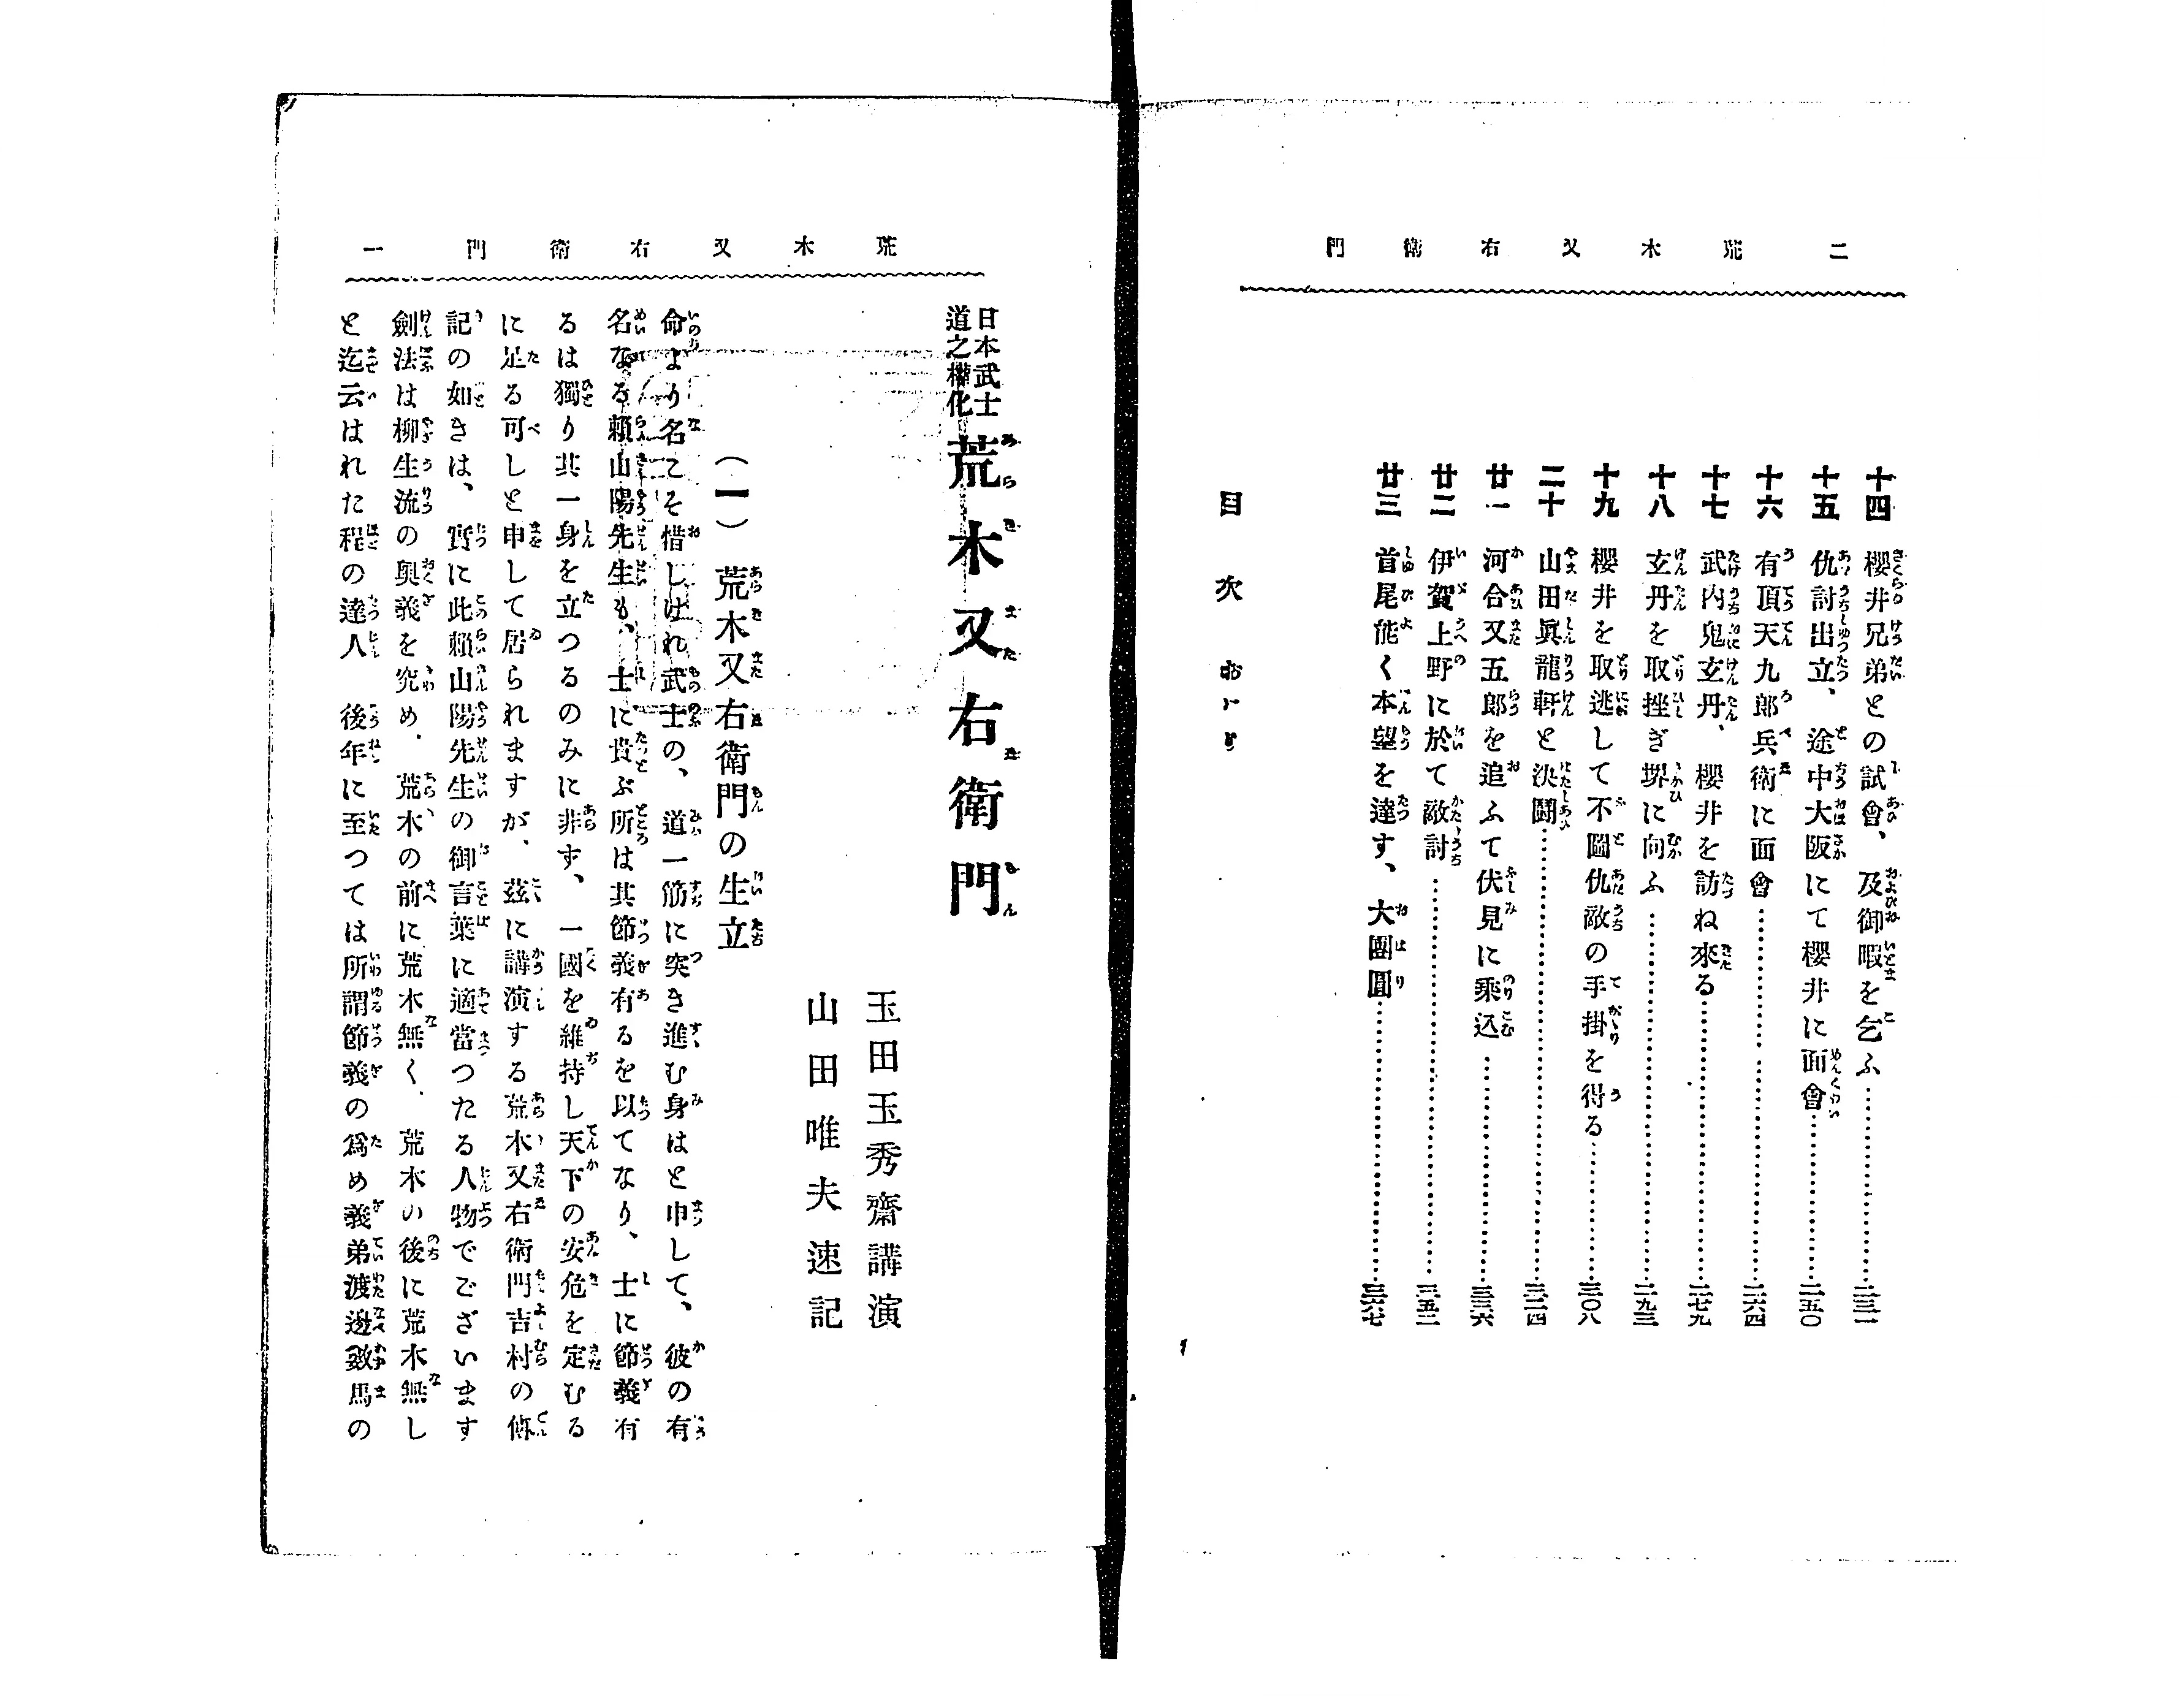 二 荒木又右衛門
十四 櫻井兄弟との試會、及御暇を乞ふ……二三一
十五 仇討出立、途中大阪にて櫻井に面會……二五〇
十六 有頂天九郎兵衛に面會……二六四
十七 武内鬼玄丹、櫻井を訪ね來る……二七九
十八 玄丹を取挫ぎ堺に向ふ……二九三
十九 櫻井を取逃して不圖仇敵の手掛を得る……三〇八
二十 山田眞龍軒と決鬪……三二四
廿一 河合又五郎を追ふて伏見に乘込……三三六
廿二 伊賀上野に於て敵討……三五二
廿三 首尾能く本望を達す、大團圓……三六七
目次おはり
荒木又右衛門 一
日本武士
道之權化
荒木又右衛門
玉田玉秀齋講演
山田唯夫速記
（一）荒木又右衛門の生立
命より名こそ惜しけれ武士の、道一筋に突き進む身はと申して、彼の有
名なる賴山陽先生も、士に貴ぶ所は其節義有るを以てなり、士に節義有
るは獨り其一身を立つるのみに非ず、一國を維持し天下の安危を定むる
に足る可しと申して居られますが、茲に講演する荒木又右衛門吉村の傳
記の如きは、實に此賴山陽先生の御言葉に適當つたる人物でございます
劍法は柳生流の奥義を究め、荒木の前に荒木無く、荒木の後に荒木無し
と迄云はれた程の達人 後年に至つては所謂節義の爲め義弟渡邊數馬の